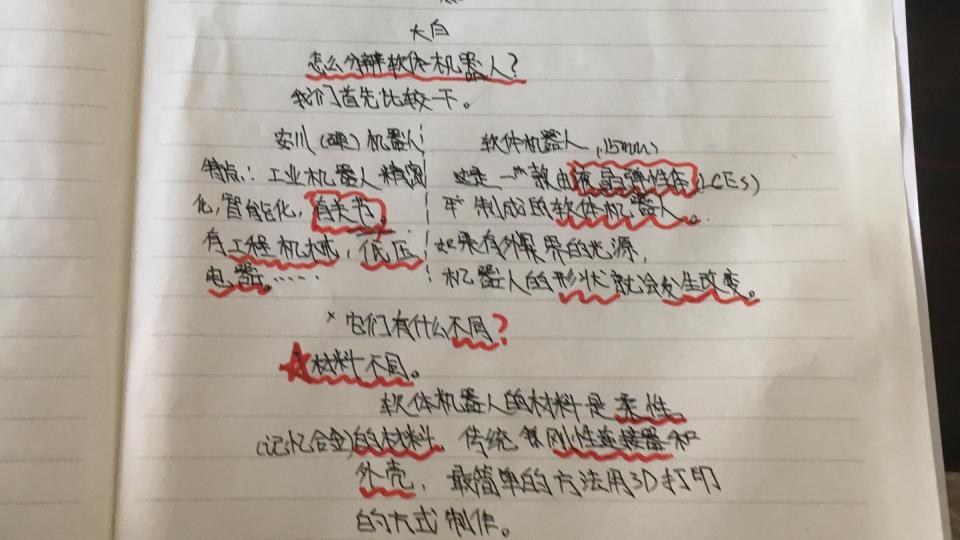 大白
怎么分辨软体机器人？
我们首先比较一下。
安川（硬）机器人
特点：工业机器人精密
化，智能化，有关节。
有工程机械，低压
电器。……
软体机器人（15mm）
这是一款由液晶弹性体（LCEs）
制成的软体机器人。
如果有外界的光源，
机器人的形状就会发生改变。
×它们有什么不同？
★材料不同。
软体机器人的材料是柔性
（记忆合金）的材料，传统 刚性连接器和
外壳，最简单的方法用3D打印
的方式制作。